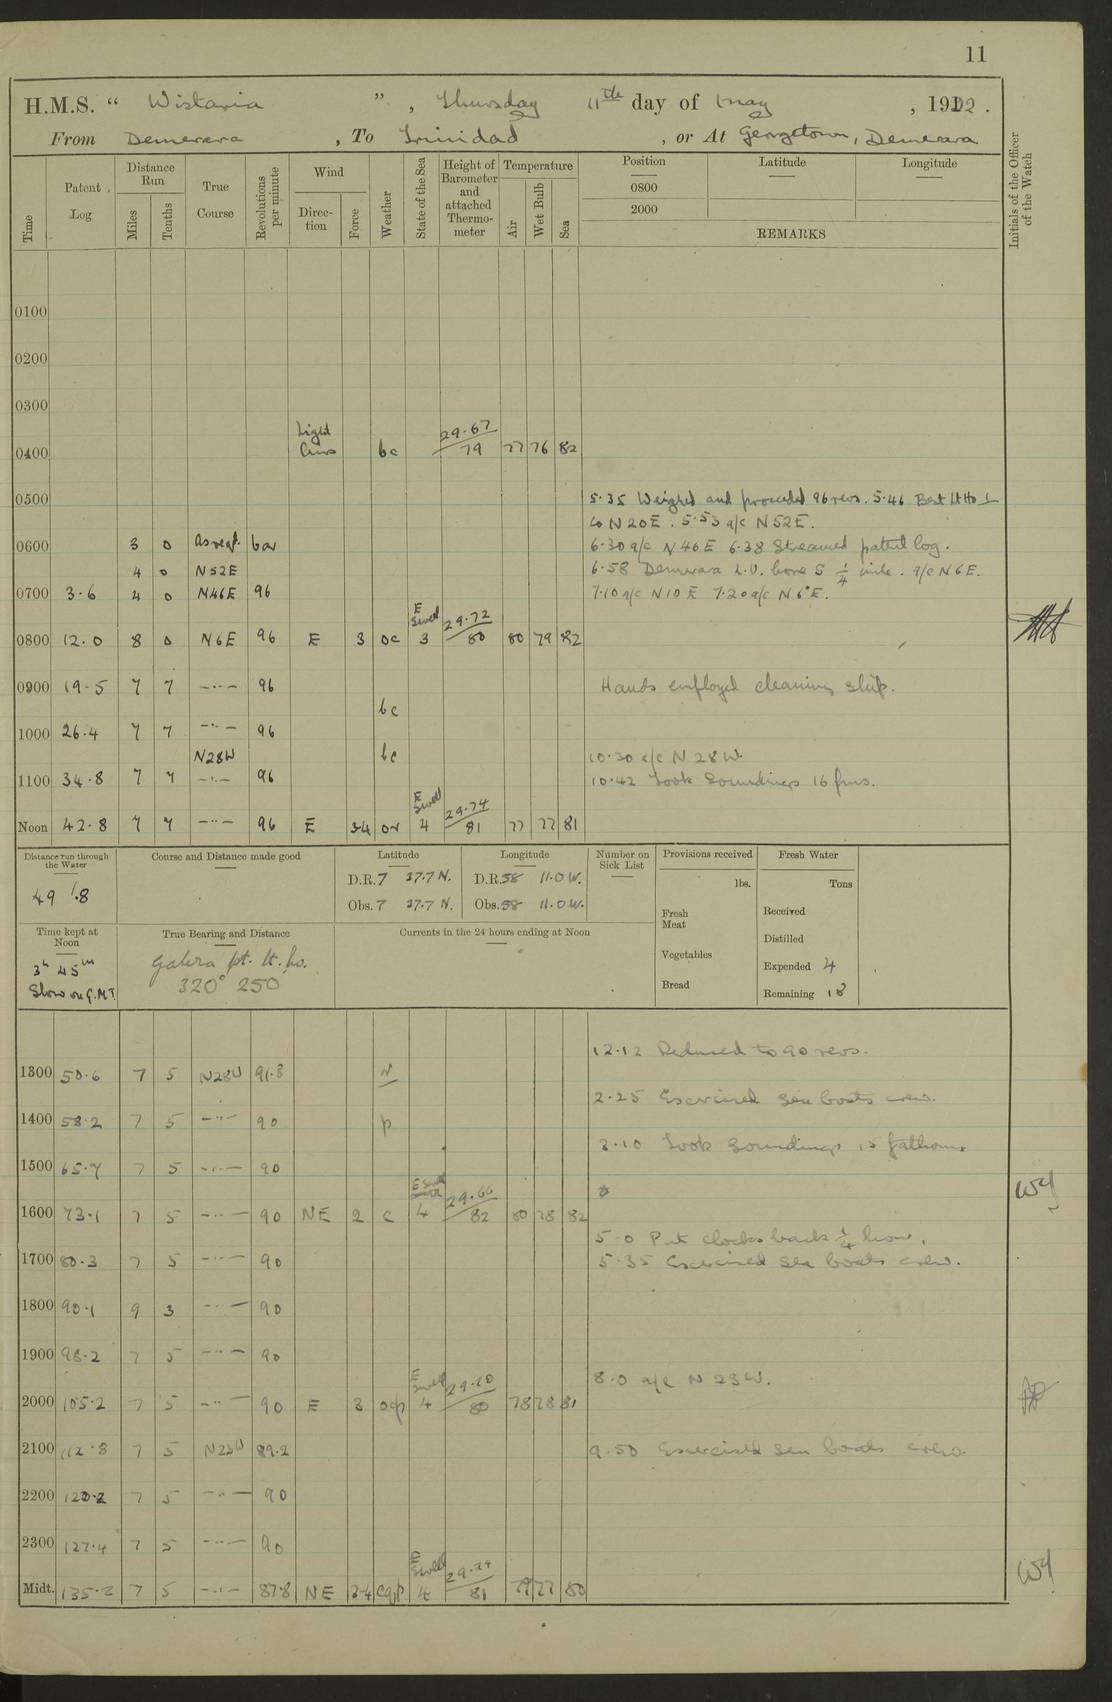 11
H.M.S. " Wistaria ", Thursday 11th day of May, 1922.
From Demerara, To Trinidad, or At Georgetown, Demerara
Time
Patent Log
Distance Run
Miles
Tenths
True Course
Revolutions per minute
Wind
Direction
Force
Weather
State of the Sea
Height of Barometer and attached Thermometer
Temperature
Air
Wet Bulb
Sea
Position Latitude Longitude
0800
2000
REMARKS
Initials of the Officer of the Watch
0100
0200
0300
0400 Light airs bc 29.67 79 77 76 82
0500 5.35 Weighed and proceeded 96 revs. 5.46 Lt Ho
to N20E. 5.53 a/c N52E.
0600 3 0 As reqt. bar 6.30 a/c N46E 6.38 Streamed patent log.
4 0 N52E 6.58 Demerara L.V. bore S 1/4 mile. a/c N6E.
0700 3.6 4 0 N46E 96 7.10 a/c N10E 7.20 a/c N6°E.
0800 12.0 8 0 N6E 96 E 3 oc E Swell 3 29.72 80 80 79 82
0900 19.5 7 7 -"- 96 Hands employed cleaning ship.
bc
1000 26.4 7 7 -"- 96
N28W bc 10.30 a/c N28W.
1100 34.8 7 7 -"- 96 10.42 Took Soundings 16 fms.
Noon 42.8 7 7 -"- 96 E 3-4 or E Swell 4 29.74 81 77 77 81
Distance run through the Water
49.8
Course and Distance made good
Latitude
D.R. 7 27.7 N.
Obs. 7 27.7 N.
Longitude
D.R. 58 11.0 W.
Obs. 58 11.0 W.
Number on Sick List
Provisions received
lbs.
Fresh Meat
Vegetables
Bread
Fresh Water
Tons
Received
Distilled
Expended 4
Remaining 18
Time kept at Noon
3h 45m
Slow on G.M.T.
True Bearing and Distance
Galera pt. lt. ho.
320° 250
Currents in the 24 hours ending at Noon
12.12 Reduced to 90 revs.
1300 50.6 7 5 N28W 91.3 r
2.25 Exercised sea boats crew.
1400 58.2 7 5 -"- 90 p
3.10 Took Soundings 15 fathoms
1500 65.7 7 5 -"- 90
1600 73.1 7 5 -"- 90 NE 2 c E Swell 4 29.66 82 80 78 82
5.0 Put clocks back 1/4 hour.
1700 80.3 7 5 -"- 90 5.35 Exercised sea boats crew.
1800 90.1 9 3 -"- 90
1900 98.2 7 5 -"- 90
8.0 a/c N23W.
2000 105.2 7 5 -"- 90 E 3 ocp E Swell 4 29.20 80 78 78 81
2100 112.8 7 5 N23W 89.2 9.50 Exercised sea boats crew.
2200 120.2 7 5 -"- 90
2300 127.4 7 5 -"- 90
Midt. 135.2 7 5 -"- 87.8 NE 3-4 cqp E Swell 4 29.74 81 79 77 80